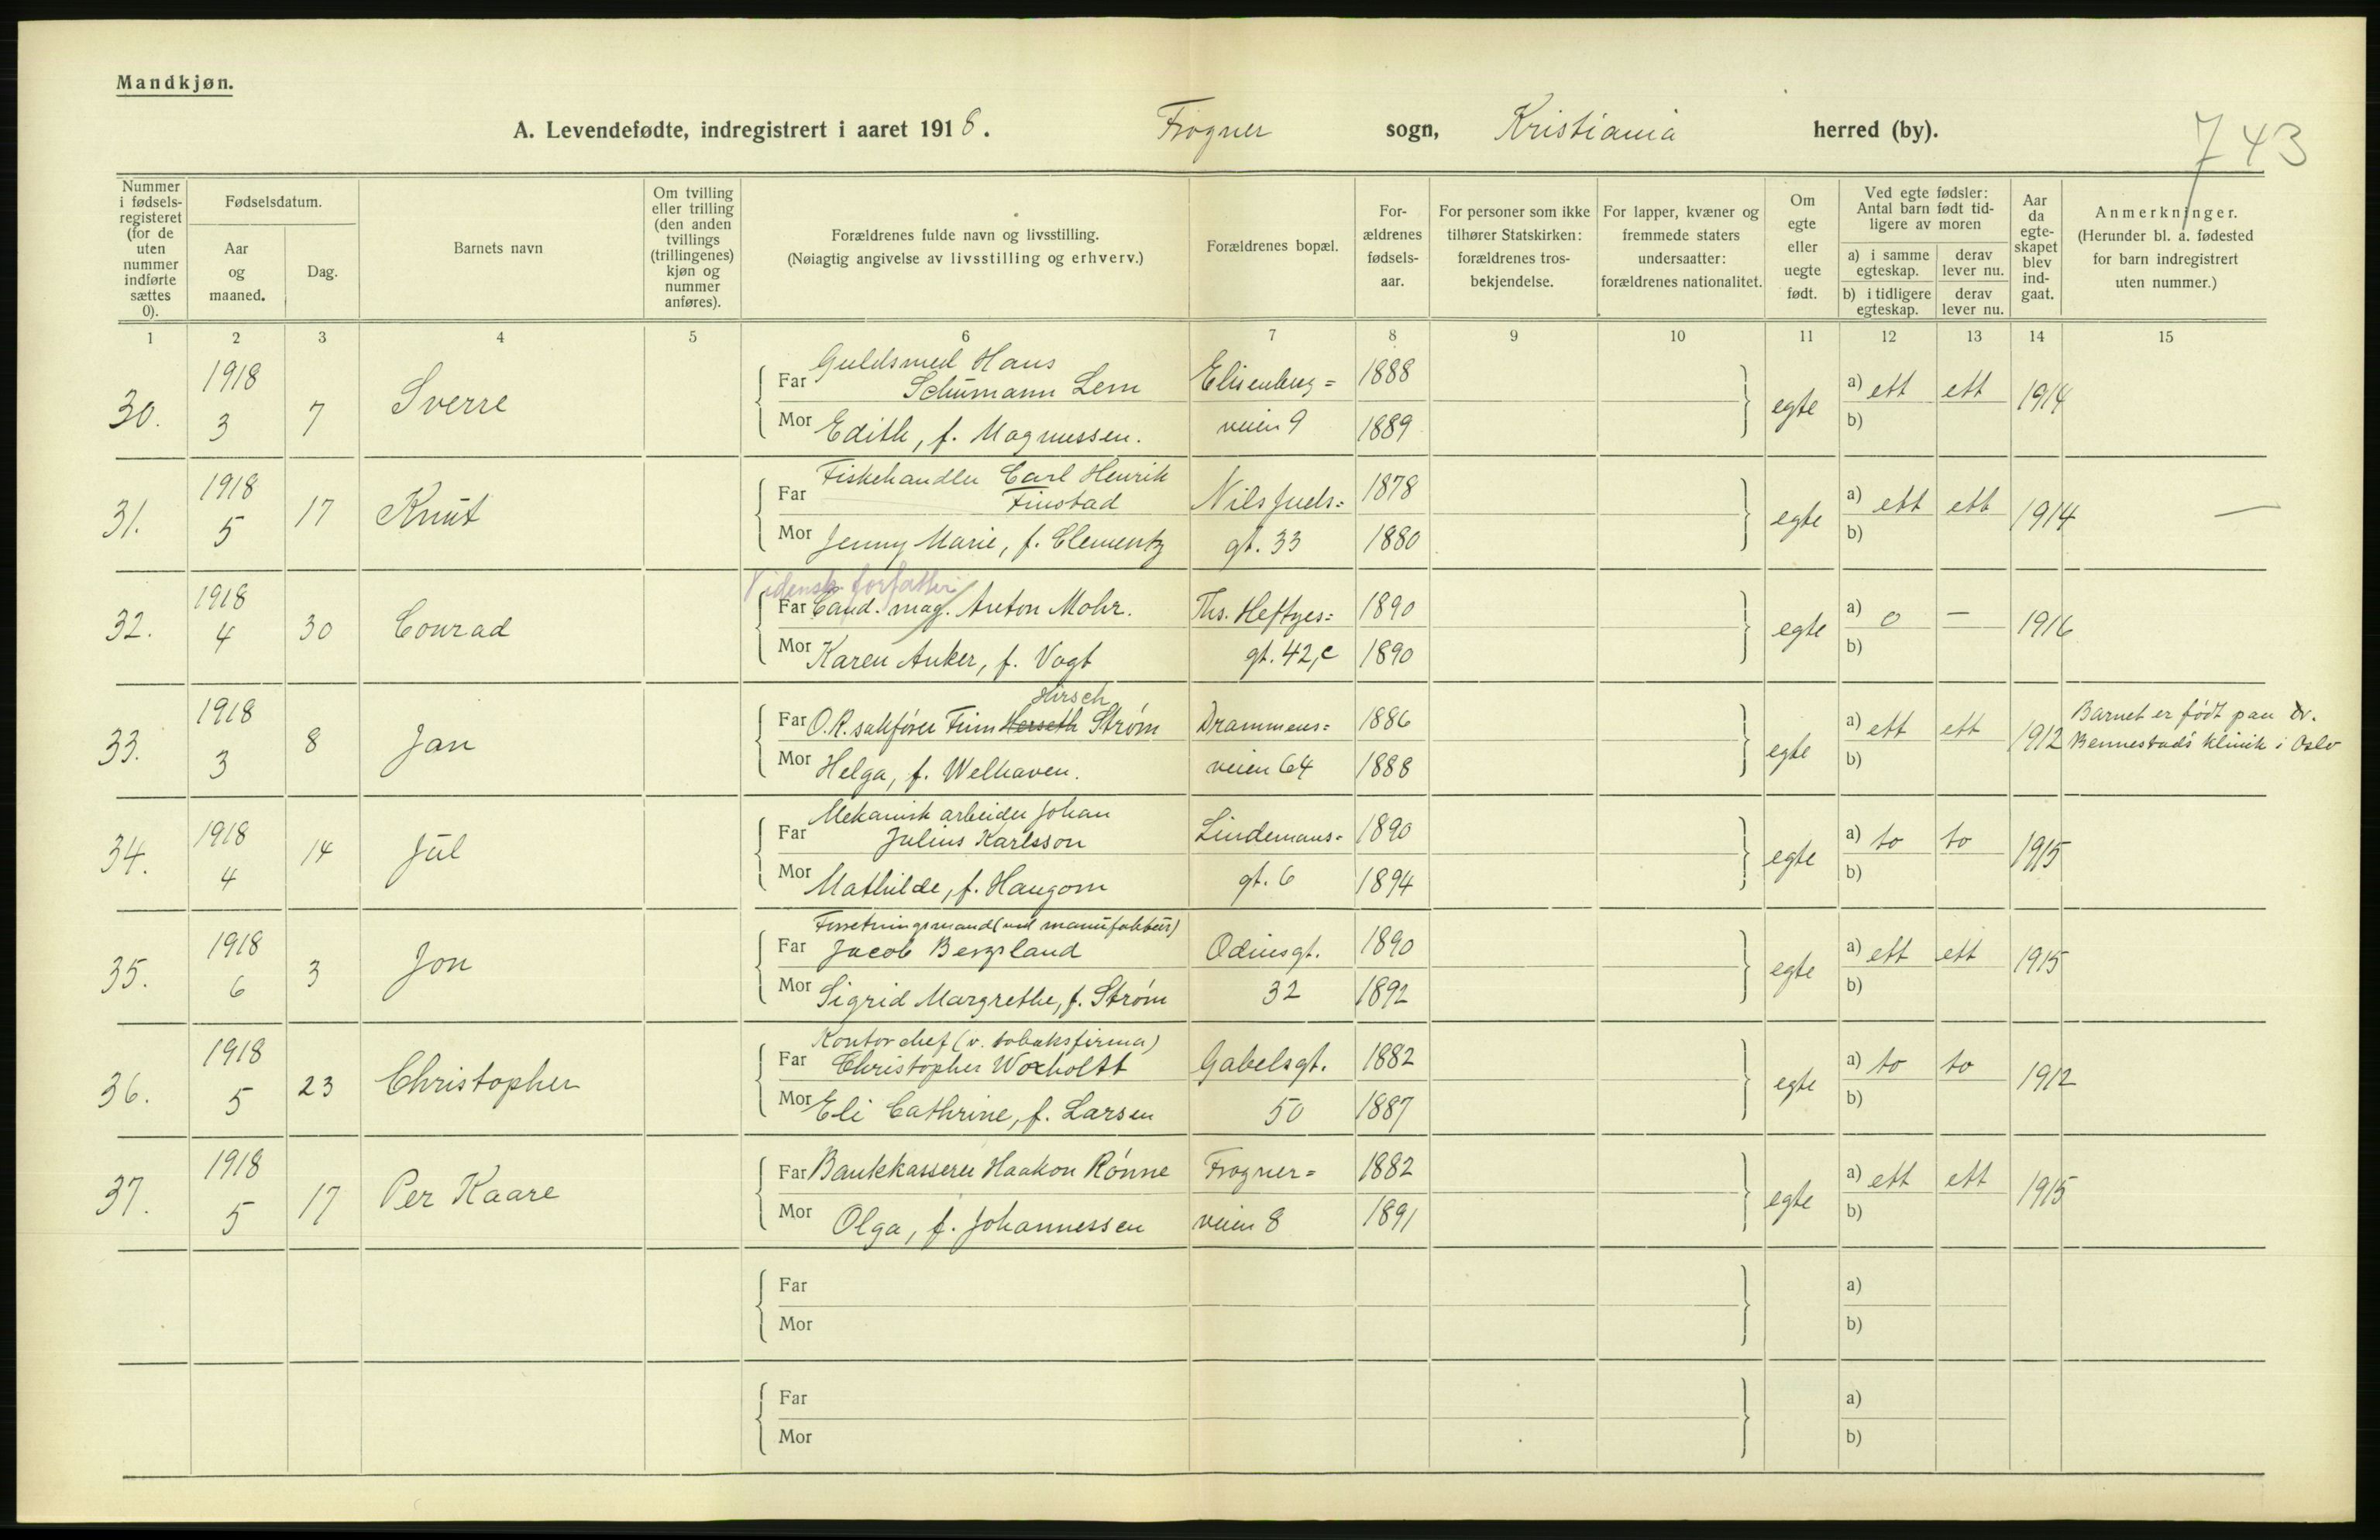 Mandkjøn.
A. Levendefødte, indregistrert i aaret 1918. Frogner sogn, Kristiania herred (by).
743
Nummer i fødsels-registeret (for de uten nummer indførte sættes 0).
Fødselsdatum.
Aar og maaned.
Dag.
Barnets navn
Om tvilling eller trilling (den anden tvillings (trillingenes) kjøn og nummer anføres).
Forældrenes fulde navn og livsstilling. (Nøiagtig angivelse av livsstilling og erhverv.)
Forældrenes bopæl.
For-ældrenes fødsels-aar.
For personer som ikke tilhører Statskirken: forældrenes tros-bekjendelse.
For lapper, kvæner og fremmede staters undersaatter: forældrenes nationalitet.
Om egte eller uegte født.
Ved egte fødsler: Antal barn født tid-ligere av moren
a) i samme egteskap.
derav lever nu.
b) i tidligere egteskap.
derav lever nu.
Aar da egte-skapet blev ind-gaat.
Anmerkninger. (Herunder bl. a. fødested for barn indregistrert uten nummer.)
1 2 3 4 5 6 7 8 9 10 11 12 13 14 15
30. 1918 3 7 Sverre
Far Guldsmed Hans
Schumann Lem Elisenberg= 1888
Mor Edith, f. Magnussen. veien 9 1889
egte a) ett ett 1914
b)
31. 1918 5 17 Knut
Far Fiskehandler Carl Henrik
Finstad Nils Juels= 1878
Mor Jenny Marie, f. Clementz gt. 33 1880
egte a) ett ett 1914 —
b)
32. 1918 4 30 Conrad
Vidensk. forfatter
Far Cand. mag. Anton Mohr. Ths. Heftyes= 1890
Mor Karen Anker, f. Vogt gt. 42,c 1890
egte a) 0 — 1916
b)
33. 1918 3 8 Jan
Hirsch
Far O.R. sakfører Finn Herseth Strøm Drammens= 1886
Mor Helga, f. Welhaven. veien 64 1888
egte a) ett ett 1912
b)
Barnet er født paa Dr.
Bennestads klinik i Oslo
34. 1918 4 14 Jul
Far Mekanisk arbeider Johan
Julius Karlsson Lindemans= 1890
Mor Mathilde, f. Haugom gt. 6 1894
egte a) to to 1915
b)
35. 1918 6 3 Jon
Forretningsmand (ved manufaktur)
Far Jacob Bergsland Odinsgt. 1890
Mor Sigrid Margrethe, f. Strøm 32 1892
egte a) ett ett 1915
b)
36. 1918 5 23 Christopher
Kontorchef (v. tobaksfirma)
Far Christopher Woxholtt Gabelsgt. 1882
Mor Eli Cathrine, f. Larsen 50 1887
egte a) to to 1912
b)
37. 1918 5 17 Per Kaare
Far Bankkasserer Haakon Rønne Frogner= 1882
Mor Olga, f. Johannessen veien 8 1891
egte a) ett ett 1915
b)
Far a)
Mor b)
Far a)
Mor b)